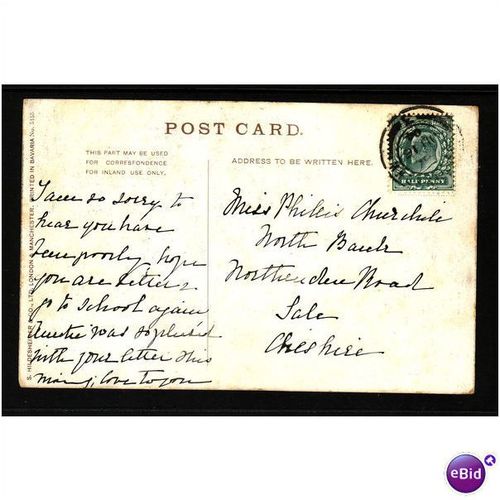 POST CARD.
THIS PART MAY BE USED
FOR CORRESPONDENCE
FOR INLAND USE ONLY.
ADDRESS TO BE WRITTEN HERE.
HALF PENNY
S. HILDESHEIMER & CO., LTD. LONDON & MANCHESTER. PRINTED IN BAVARIA No. 5155
I am so sorry to
hear you have
been poorly hope
you are better &
go to school again
Auntie was so pleased
with your letter this
morng, love to you
Miss Phillis
North Bank
Northenden Road
Sale
Cheshire
eBid